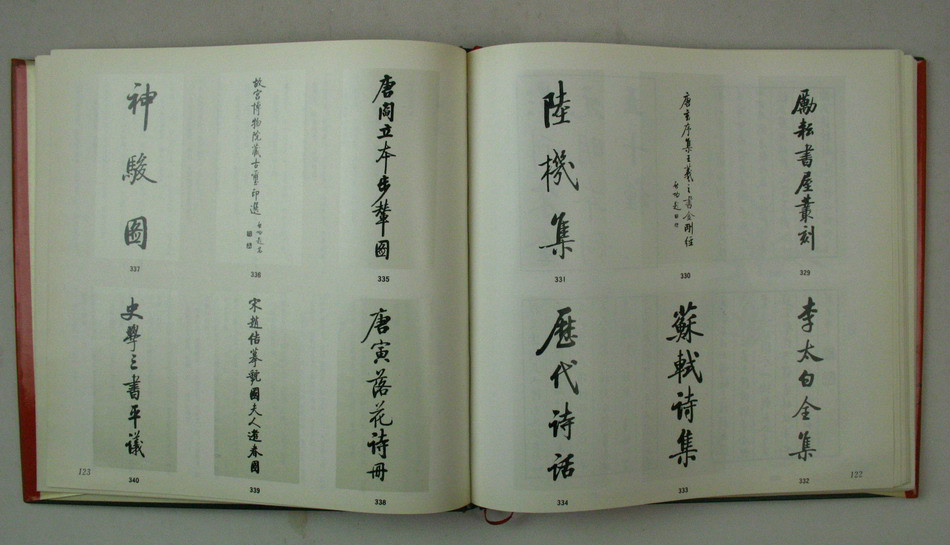 勵耘書屋叢刻
329
唐玄序集王羲之書金剛經
啟功題
330
陸機集
331
李太白全集
332
蘇軾詩集
333
歷代詩話
334
122
唐閻立本步輦圖
335
故宮博物院藏古璽印選
啟功題
336
神駿圖
337
唐寅落花詩冊
338
宋趙佶摹虢國夫人遊春圖
339
史學三書平議
340
123